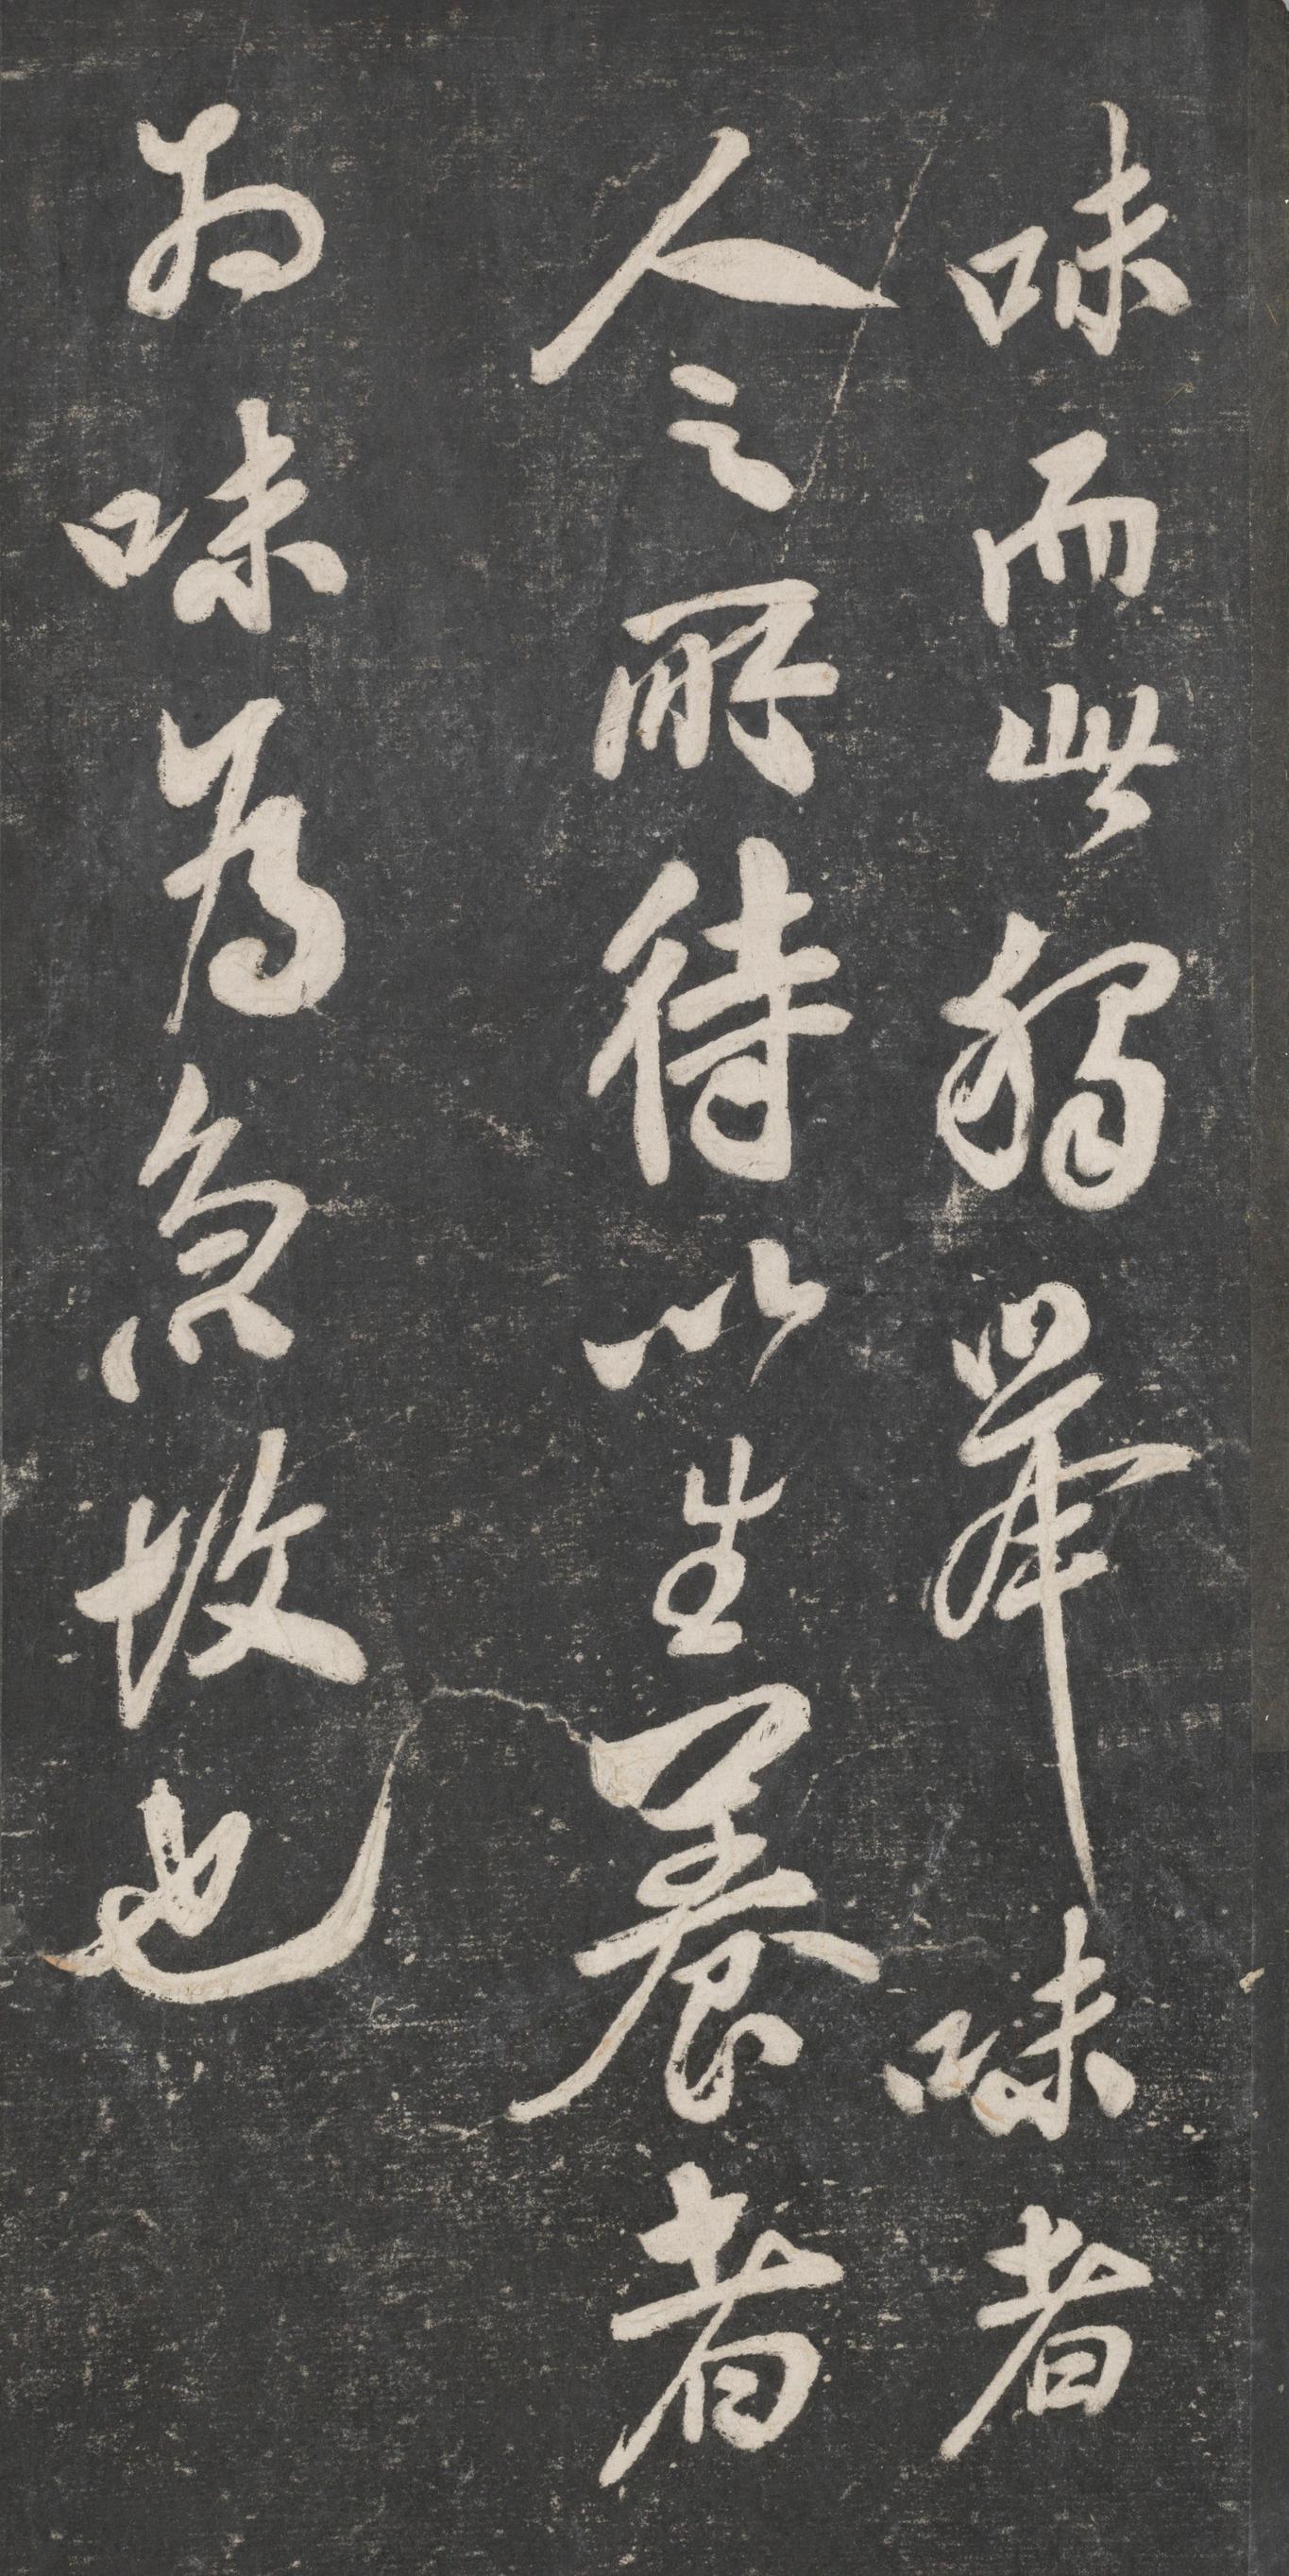 味而此獨舉味者
人之所待以生養者
為味為急故也